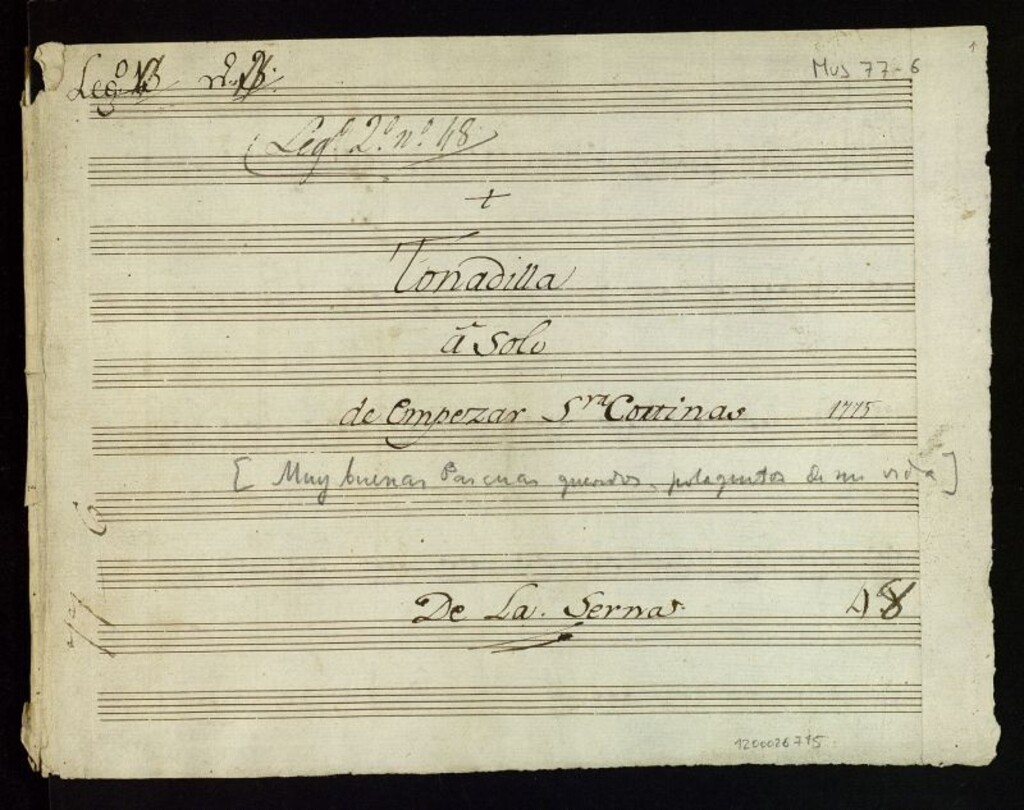 Leg.º 13 n.º
Mus 77-6
1
Leg.º 2.º n.º 48
+
Tonadilla
â Solo
de Empezar S.ra Cortinas 1775
[ Muy buenas Pascuas queridos polaquitos de mi vida ]
De La Serna
48
1200026715